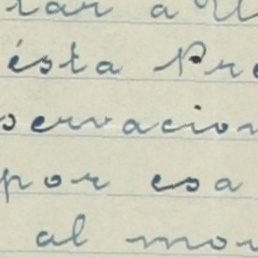 tar a U
ésta Pre
servacion
por esa
al mo